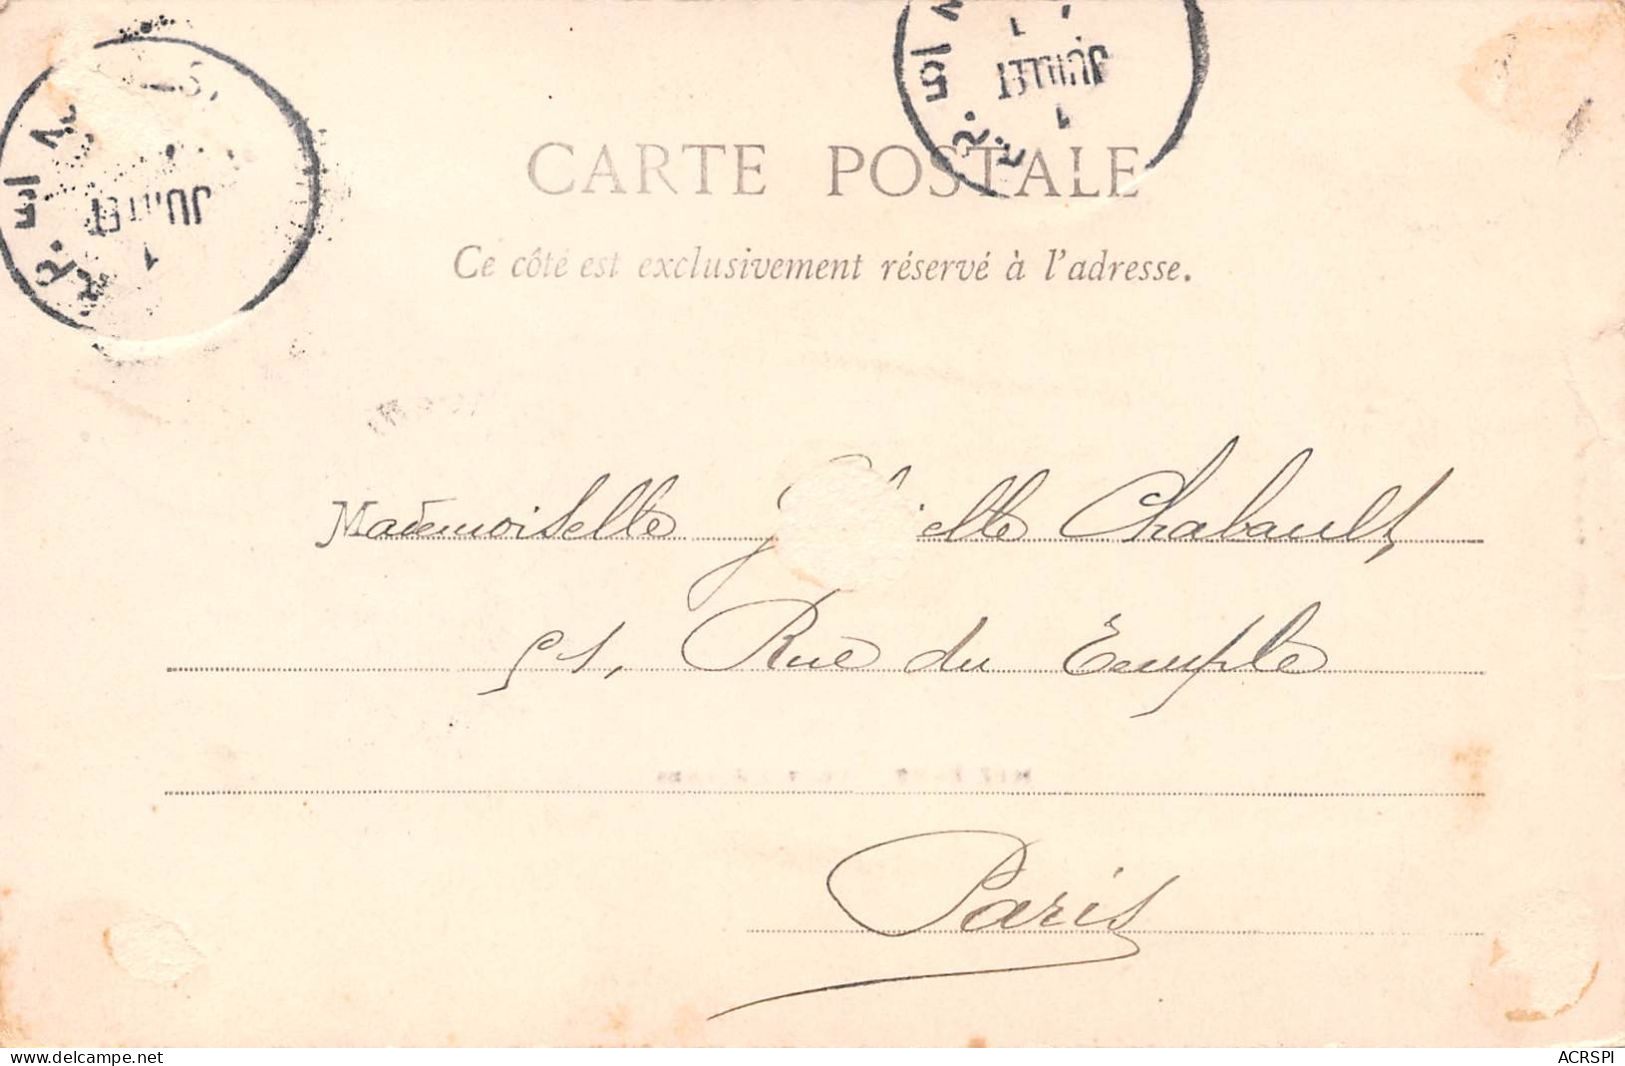 JUILLET
1
5
JUILLET
1
CARTE POSTALE
Ce côté est exclusivement réservé à l'adresse.
Mademoiselle Chabault,
51, Rue du Temple
Paris
www.delcampe.net
ACRSPI